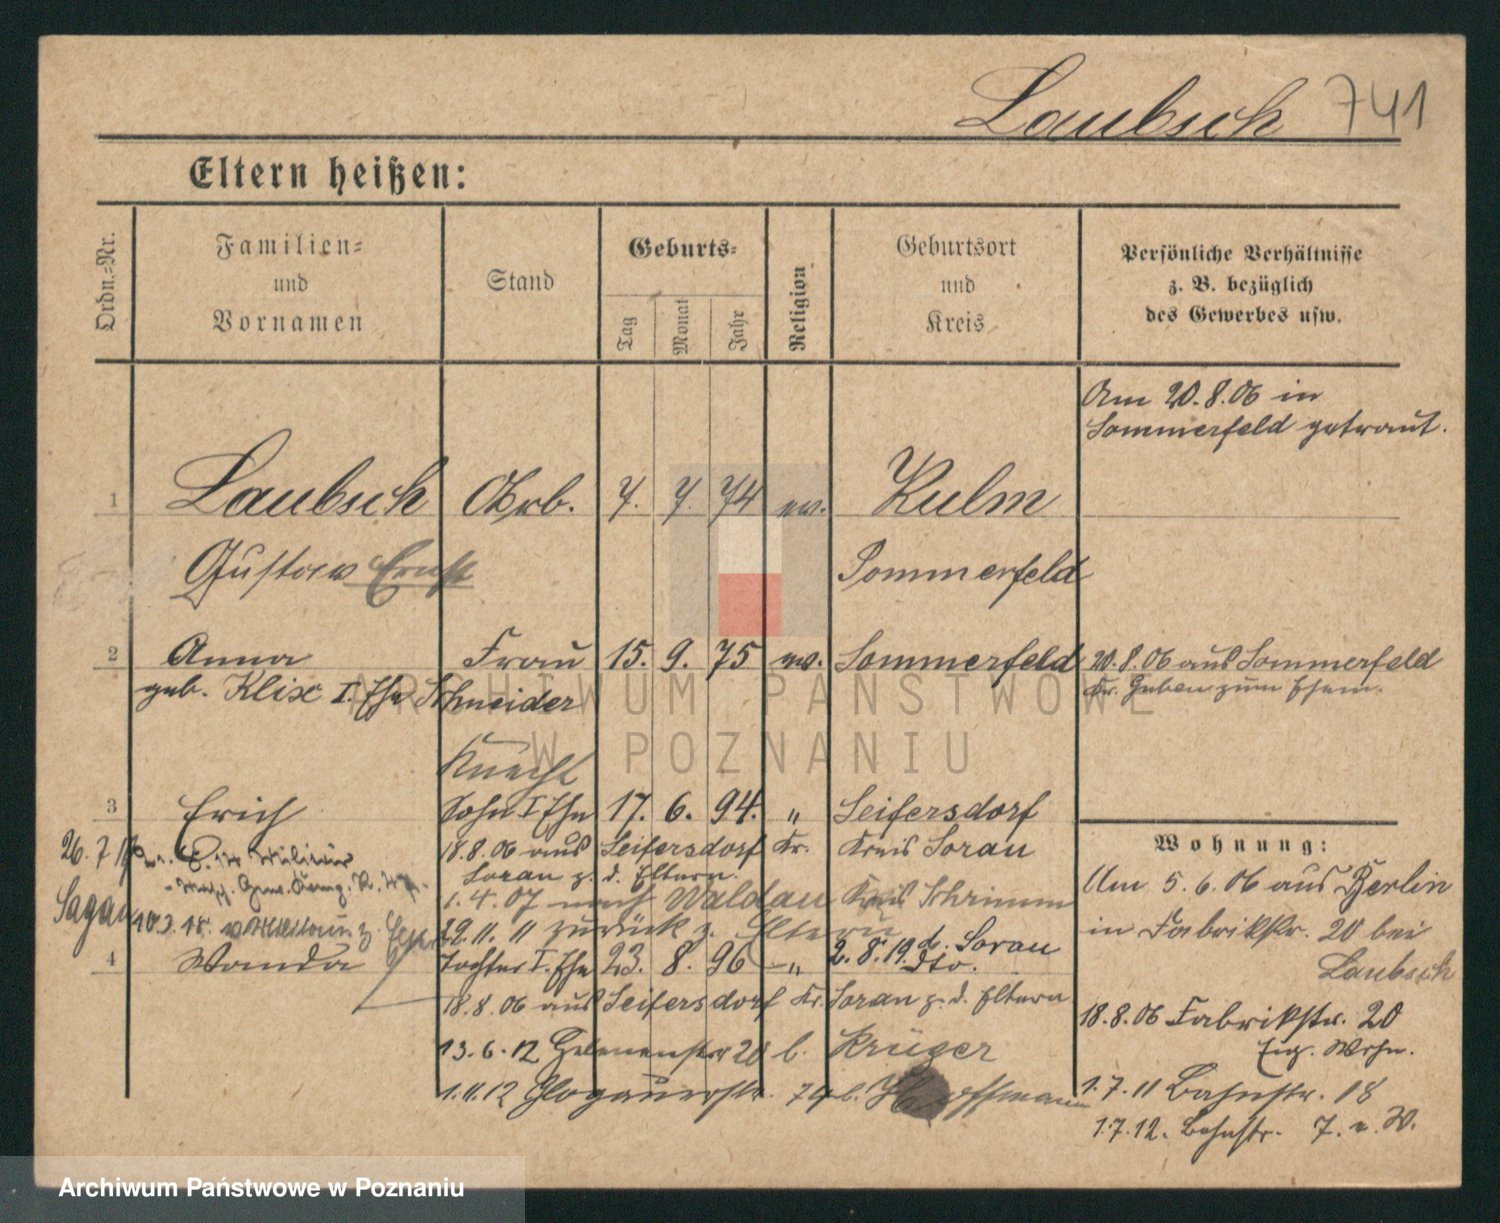 Laubsch 741
Eltern heißen:
Ordn.=Nr.
Familien=
und
Vornamen
Stand
Geburts=
Tag
Monat
Jahr
Religion
Geburtsort
und
Kreis
Persönliche Verhältnisse
z. B. bezüglich
des Gewerbes usw.
Am 20.8.06 in
Sommerfeld getraut.
1 Laubsch Arb. 7. 7. 74 ev. Kulm
Gustav Ernst Sommerfeld
2 Anna Frau 15. 9. 75 ev. Sommerfeld 20.8.06 aus Sommerfeld
geb. Klix I. Ehe Schneider Kr. Guben zum Ehem.
Knecht
3 Erich Sohn I Ehe 17. 6. 94. " Seifersdorf
18.8.06 aus Seifersdorf Kr. Kreis Sorau
Sorau z. d. Eltern.
26.7.
Sagan
1.4.07 nach Waldau Kreis Schrimm
10.3.18. v
29.11. " zurück z. Eltern
2.8.19. d. Sorau
4 Wanda Tochter I. Ehe 23. 8. 96 " dto.
18.8.06 aus Seifersdorf Kr. Sorau z. d. Eltern
13.6.12 20 b. Krüger
1.11.12 Glogauerstr. 74 b. Hoffmann
Wohnung:
Am 5.6.06 aus Berlin
in Fabrikstr. 20 bei
Laubsch
18.8.06 Fabrikstr. 20
Eig. Wohn.
1.7.11 Bahnstr. 18
1.7.12. Bahnstr. 7. e. W.
ARCHIWUM PAŃSTWOWE
W POZNANIU
Archiwum Państwowe w Poznaniu